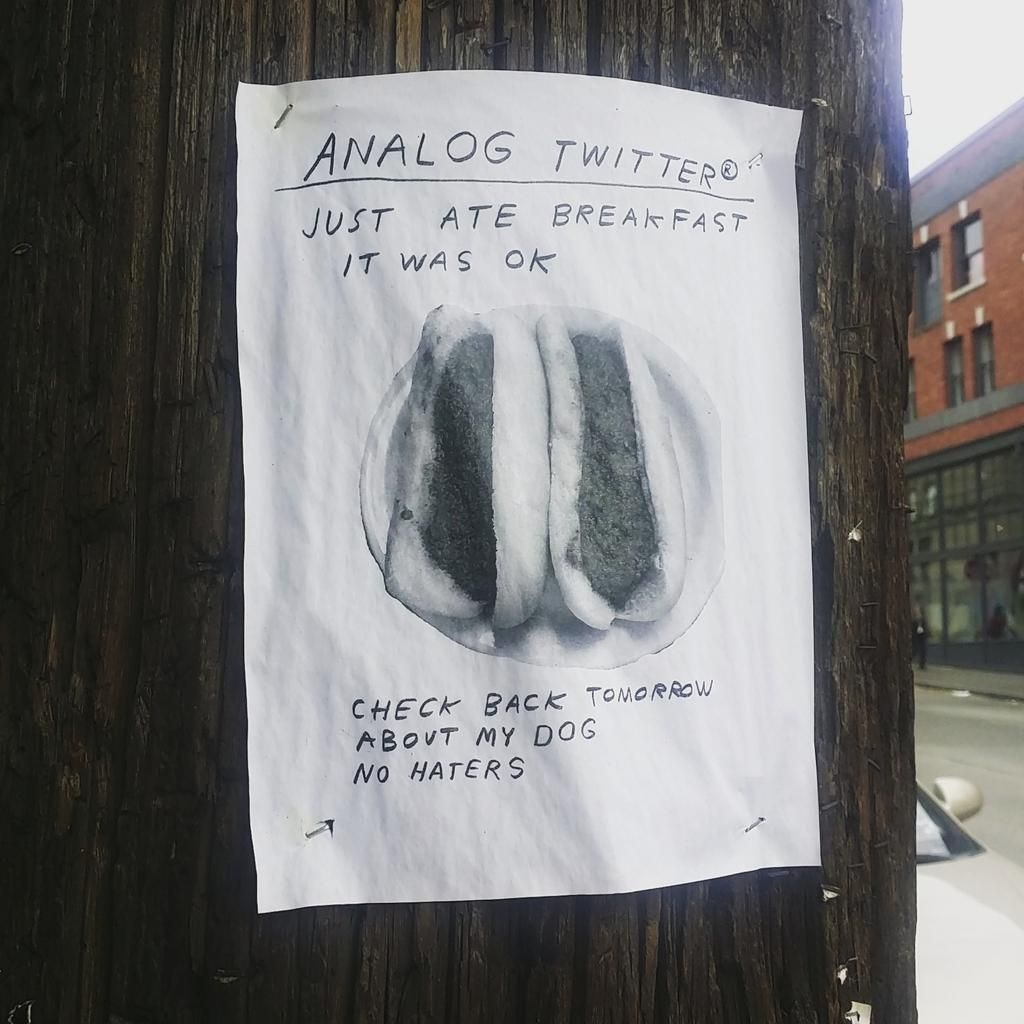 ANALOG TWITTER®
JUST ATE BREAKFAST
IT WAS OK
CHECK BACK TOMORROW
ABOUT MY DOG
NO HATERS